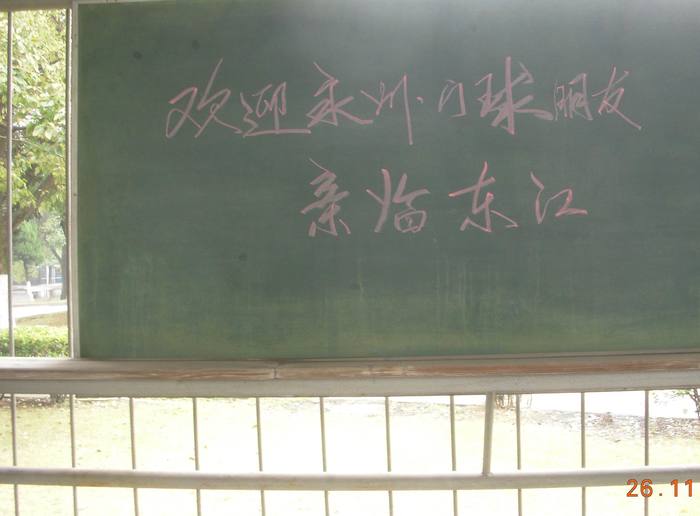 欢迎永州门球朋友
亲临东江
26.11